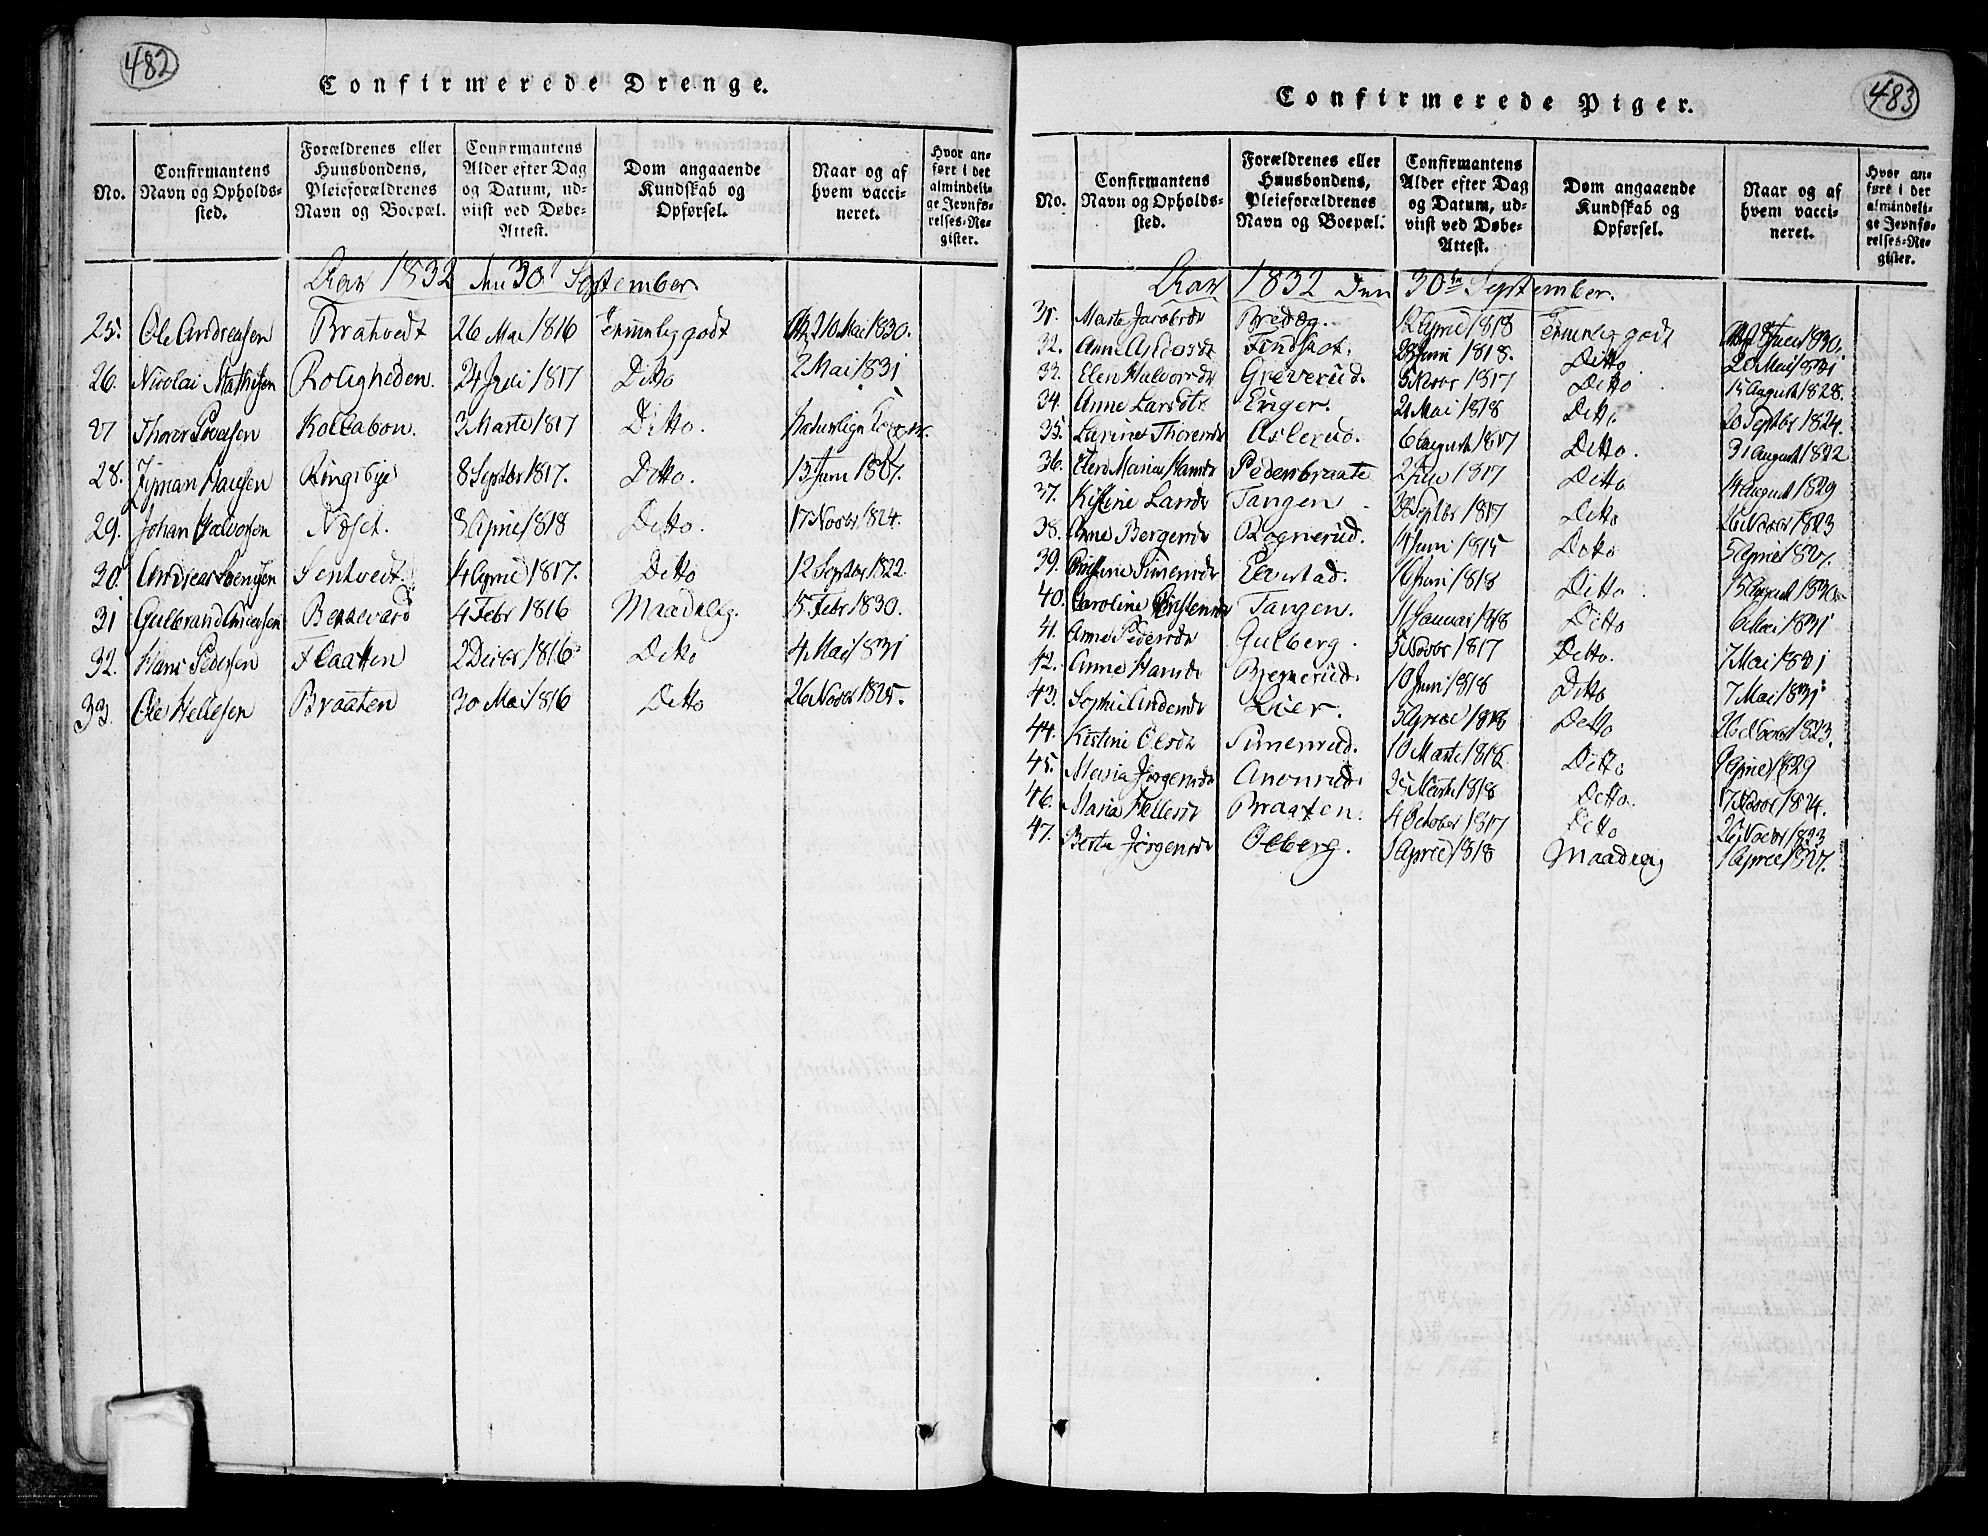 482
Confirmerede Drenge.
No.
Confirmantens Navn og Opholds-sted.
Forældrenes eller Huusbondens, Pleieforældrenes Navn og Boepæl.
Confirmantens Alder efter Dag og Datum, ud-viist ved Døbe-Attest.
Dom angaaende Kundskab og Opførsel.
Naar og af hvem vacci-neret.
Hvor an-ført i det almindeli-ge Jevnfø-relses-Re-gister.
Aar 1832 den 30 September
25. Ole Andreasen Bratvedt 26 Mai 1816 Temmelig godt 210 Mai 1830.
26. Nicolai Mathisen Roligheden. 24 Juli 1817 Ditto 2 Mai 1831
27 Thorer 3 Marts 1817 Ditto. Naturlige
28. Hansen Ringsbye 8 Septbr 1817. Ditto. 13 Juni
29. Johan Halvorsen Næset. 3 April 1818 Ditto. 17 Novbr 1824.
30. Andreas Svendsen Sentvedt. 4 April 1817. Ditto 12 Septbr 1822
31 Gulbrand Andersen 4 Febr 1816 Maadelig. 5. Febr 1830.
32. Hans Pedersen Flaatten 2 Decbr 1816 Ditto 4 Mai 1831
33. Ole Hellesen Braaten 30 Mai 1816 Ditto 26 Novbr 1825.
483
Confirmerede Piger.
No.
Confirmantens Navn og Opholds-sted.
Forældrenes eller Huusbondens, Pleieforældrenes Navn og Boepæl.
Confirmantens Alder efter Dag og Datum, ud-viist ved Døbe-Attest.
Dom angaaende Kundskab og Opførsel.
Naar og af hvem vacci-neret.
Hvor an-ført i det almindeli-ge Jevnfø-relses-Re-gister.
Aar 1832 Den 30te September.
Marte Jacobsdr 12 April 1818 Temmelig godt 1830.
32. Anne Juni 1818. Ditto 2 Mai 1831
33. Elen Halvorsdr Greverud. Novbr 1817 Ditto 15 August 1828.
34. Anne Larsdtr Enger. 21 Mai 1818 Ditto. 20 Septbr 1824.
35. Larine Thorersdr Aslerud. 6 August 1817 Ditto. 31 August 1822
36. Elen Maria Hansdr Pedersbraate 1817 Ditto 14 August 1829
37. Kistine Larsdr Tangen. Septbr 1817 Ditto 26 Novbr 1823
38. Anne Bergersdr Rognerud. 14 Juni 1815 Ditto 5 April
39. Simensdr Elvestad. 16 Juni 1818 Ditto 15 August 1830
40. Caroline Tangen. 11 Januar 1818 Ditto Mai 1831
41. Anne Pedersdr Gulberg. 5 Novbr 1817 Ditto. 7 Mai 1831
42. Anne Hansdr Bjernerud. 10 Juni 1818 Ditto 7 Mai 1831
43. Sophie Andersdr Lier. 5 April 1818 Ditto 26 Novbr 1823.
44. Kistine Olsdr Simenrud. 10 Marts 1818 Ditto 9 April 1829
45. Maria Jørgensdr 25 Marts 1818 Ditto. 17 Novbr 1824.
46. Maria Hellesdr Braaten. 4 October 1817 Ditto 26 Novbr 1823
47. Berte Jørgensdr Oeberg. 1 April 1818 Maadelig 1 April 1827.